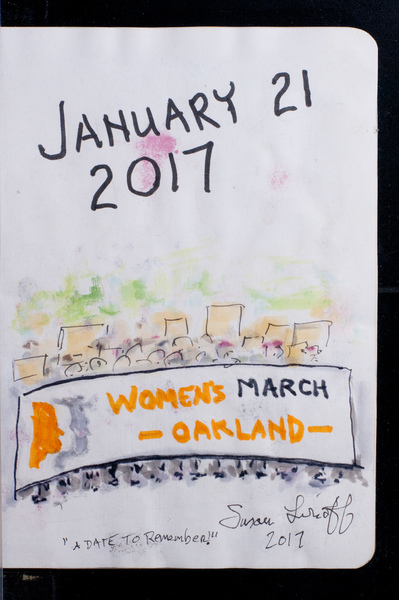 JANUARY 21
2017
WOMEN'S MARCH
— OAKLAND —
"A DATE TO Remember!"
Susan
2017